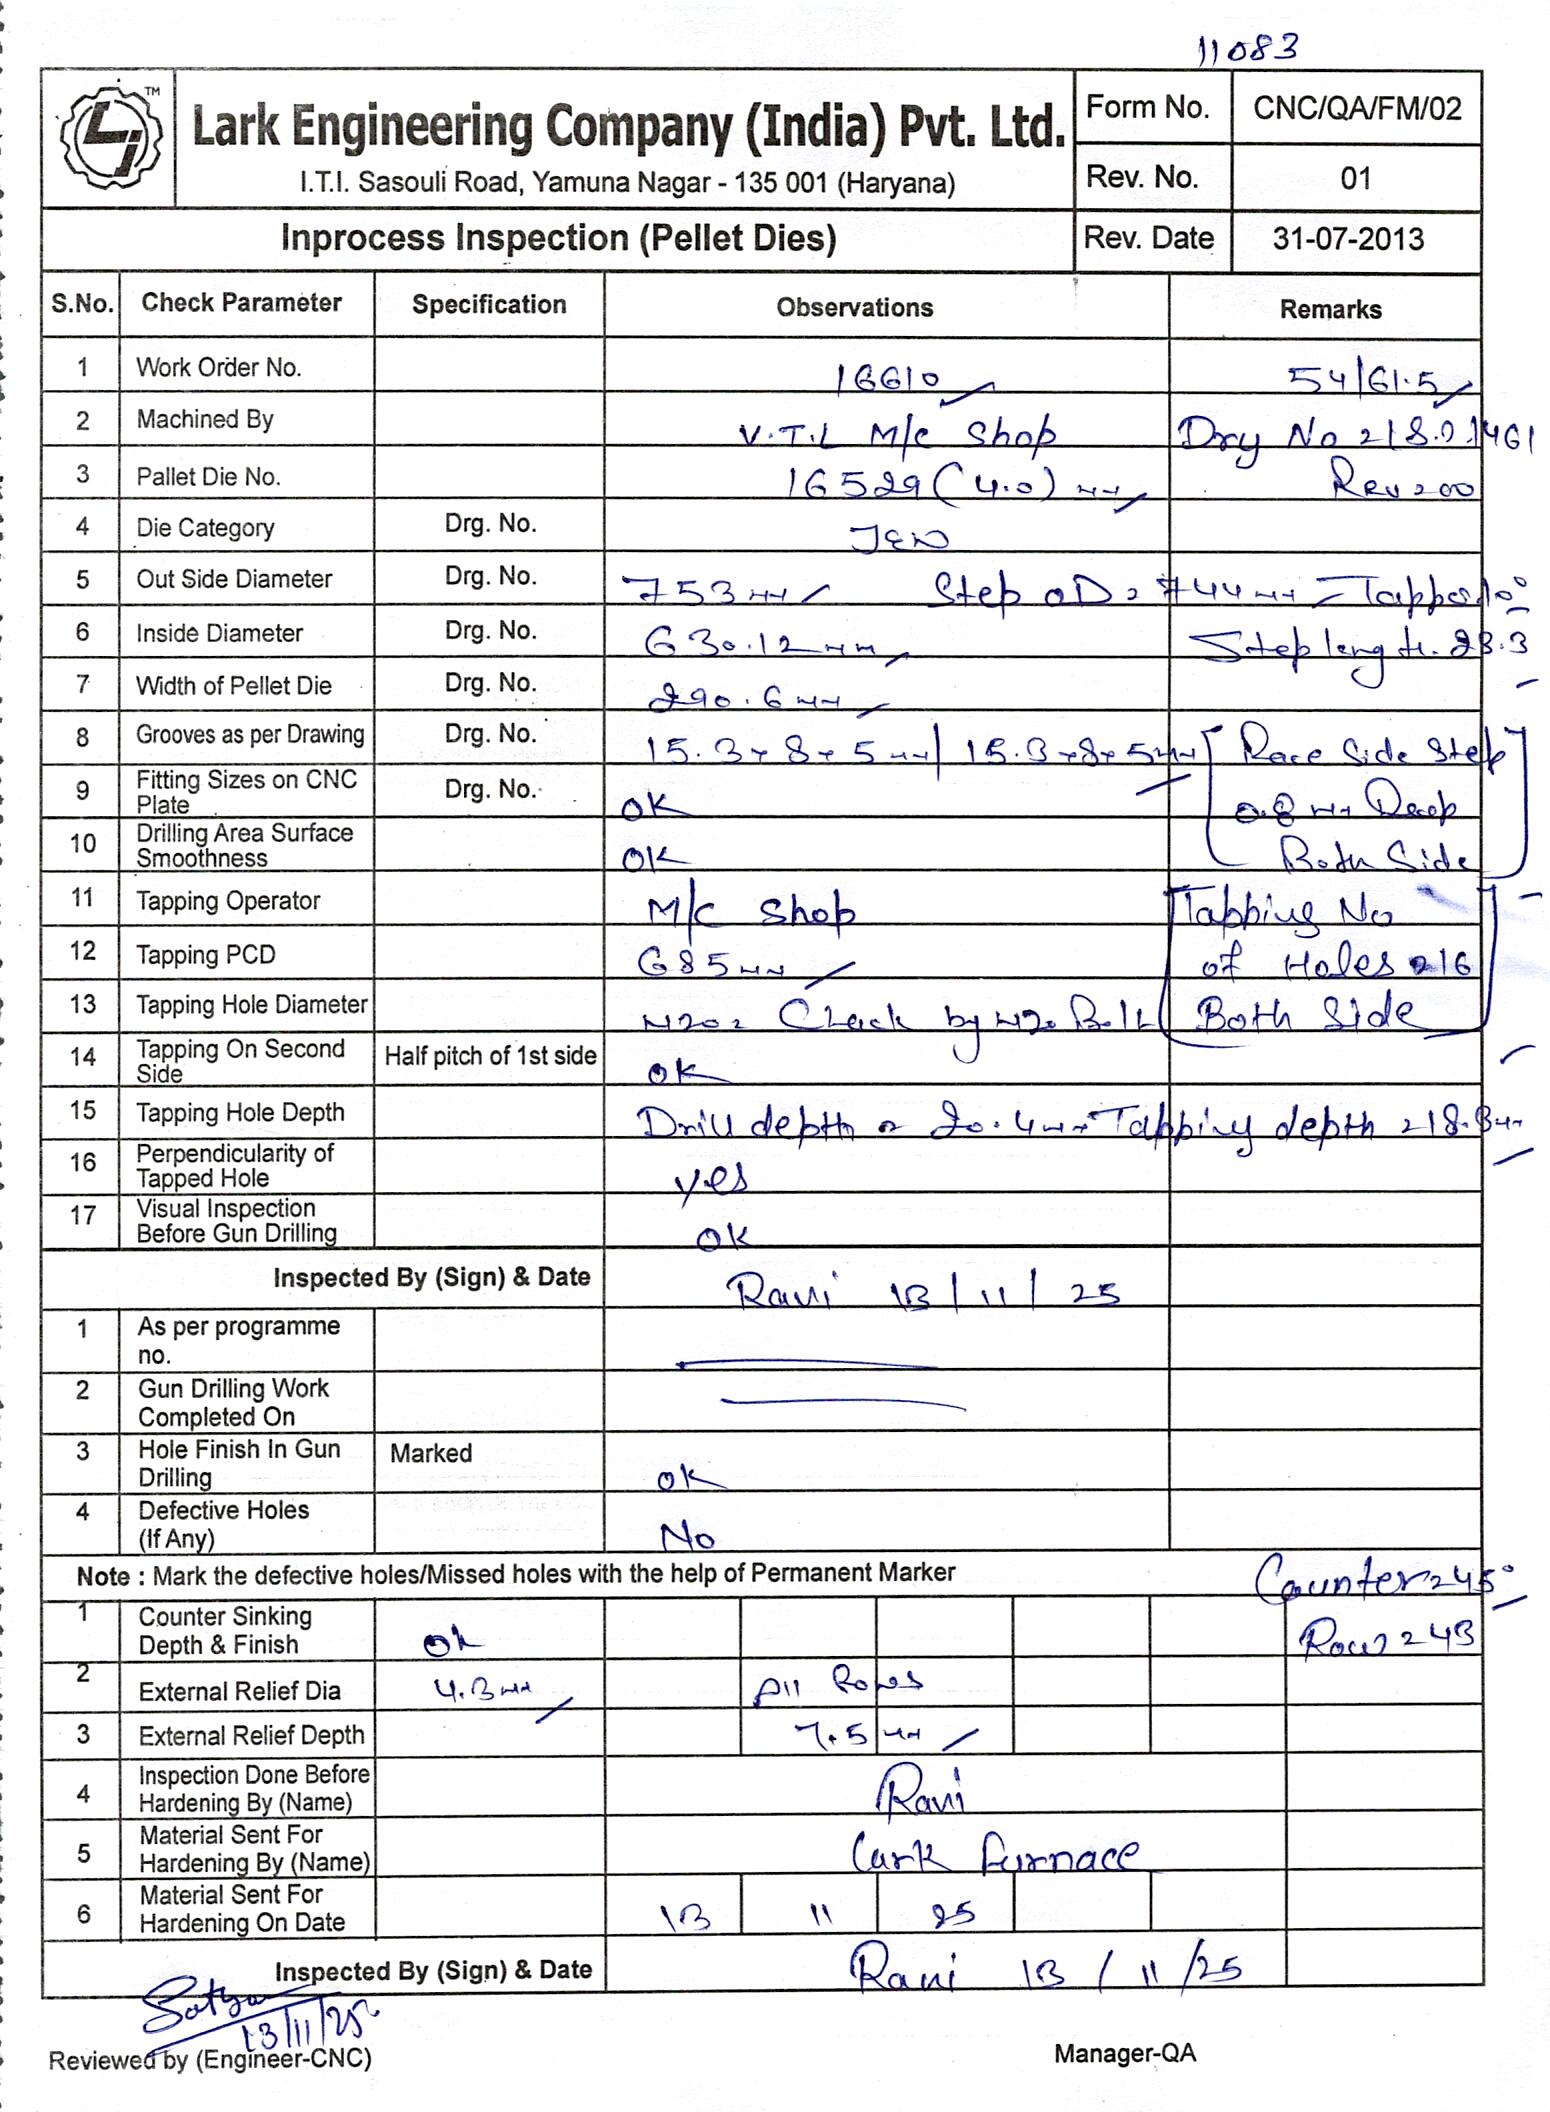 11083
TM
Lark Engineering Company (India) Pvt. Ltd.
I.T.I. Sasouli Road, Yamuna Nagar - 135 001 (Haryana)
Form No. CNC/QA/FM/02
Rev. No. 01
Inprocess Inspection (Pellet Dies) Rev. Date 31-07-2013
S.No. Check Parameter Specification Observations Remarks
1 Work Order No. 16610 54/61.5
2 Machined By V.T.L M/c Shop Drg No
3 Pallet Die No. 16529 (4.0) mm Rev = 00
4 Die Category Drg. No.
5 Out Side Diameter Drg. No. 753 mm Step OD = 744 mm - Tapper 10°
6 Inside Diameter Drg. No. 630.12 mm Step length. 23.3
7 Width of Pellet Die Drg. No. 290.6 mm
8 Grooves as per Drawing Drg. No. 15.3 x 8 x 5 mm / 15.3 x 8 x 5 mm [Race Side Step
9 Fitting Sizes on CNC Plate Drg. No. OK 0.8 mm Deep
10 Drilling Area Surface Smoothness OK Both Side]
11 Tapping Operator M/c Shop [Tapping No
12 Tapping PCD 685 mm of Holes = 16
13 Tapping Hole Diameter M20 = Check by M20 Bolt Both Side]
14 Tapping On Second Side Half pitch of 1st side OK
15 Tapping Hole Depth Drill depth = 20.4 mm Tapping depth = 18.8 mm
16 Perpendicularity of Tapped Hole Yes
17 Visual Inspection Before Gun Drilling OK
Inspected By (Sign) & Date Ravi 13/11/25
1 As per programme no.
2 Gun Drilling Work Completed On
3 Hole Finish In Gun Drilling Marked OK
4 Defective Holes (If Any) No
Note : Mark the defective holes/Missed holes with the help of Permanent Marker Counter = 45°
1 Counter Sinking Depth & Finish Ok Row = 43
2 External Relief Dia 4.3 mm All Rows
3 External Relief Depth 7.5 mm
4 Inspection Done Before Hardening By (Name) Ravi
5 Material Sent For Hardening By (Name) Lark Furnace
6 Material Sent For Hardening On Date 13 11 25
Inspected By (Sign) & Date Ravi 13/11/25
Satya
13/11/25
Reviewed by (Engineer-CNC) Manager-QA